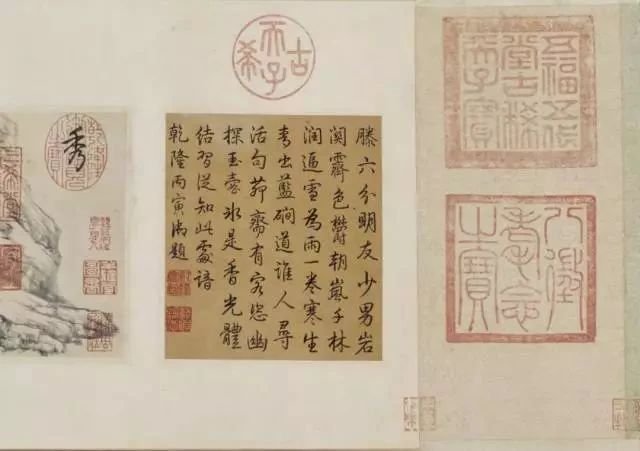 五福五代
堂古稀
天子寶
八徵
耄念
之寶
古稀天子
滕六分明友少男岩
関霽色欝朝嵐千林
润逼雪為雨一卷寒生
青出藍磵道誰人尋
活句茆齋有客恣幽
探玉壺氷是香光體
結習從知此處諳
乾隆丙寅御題
秀